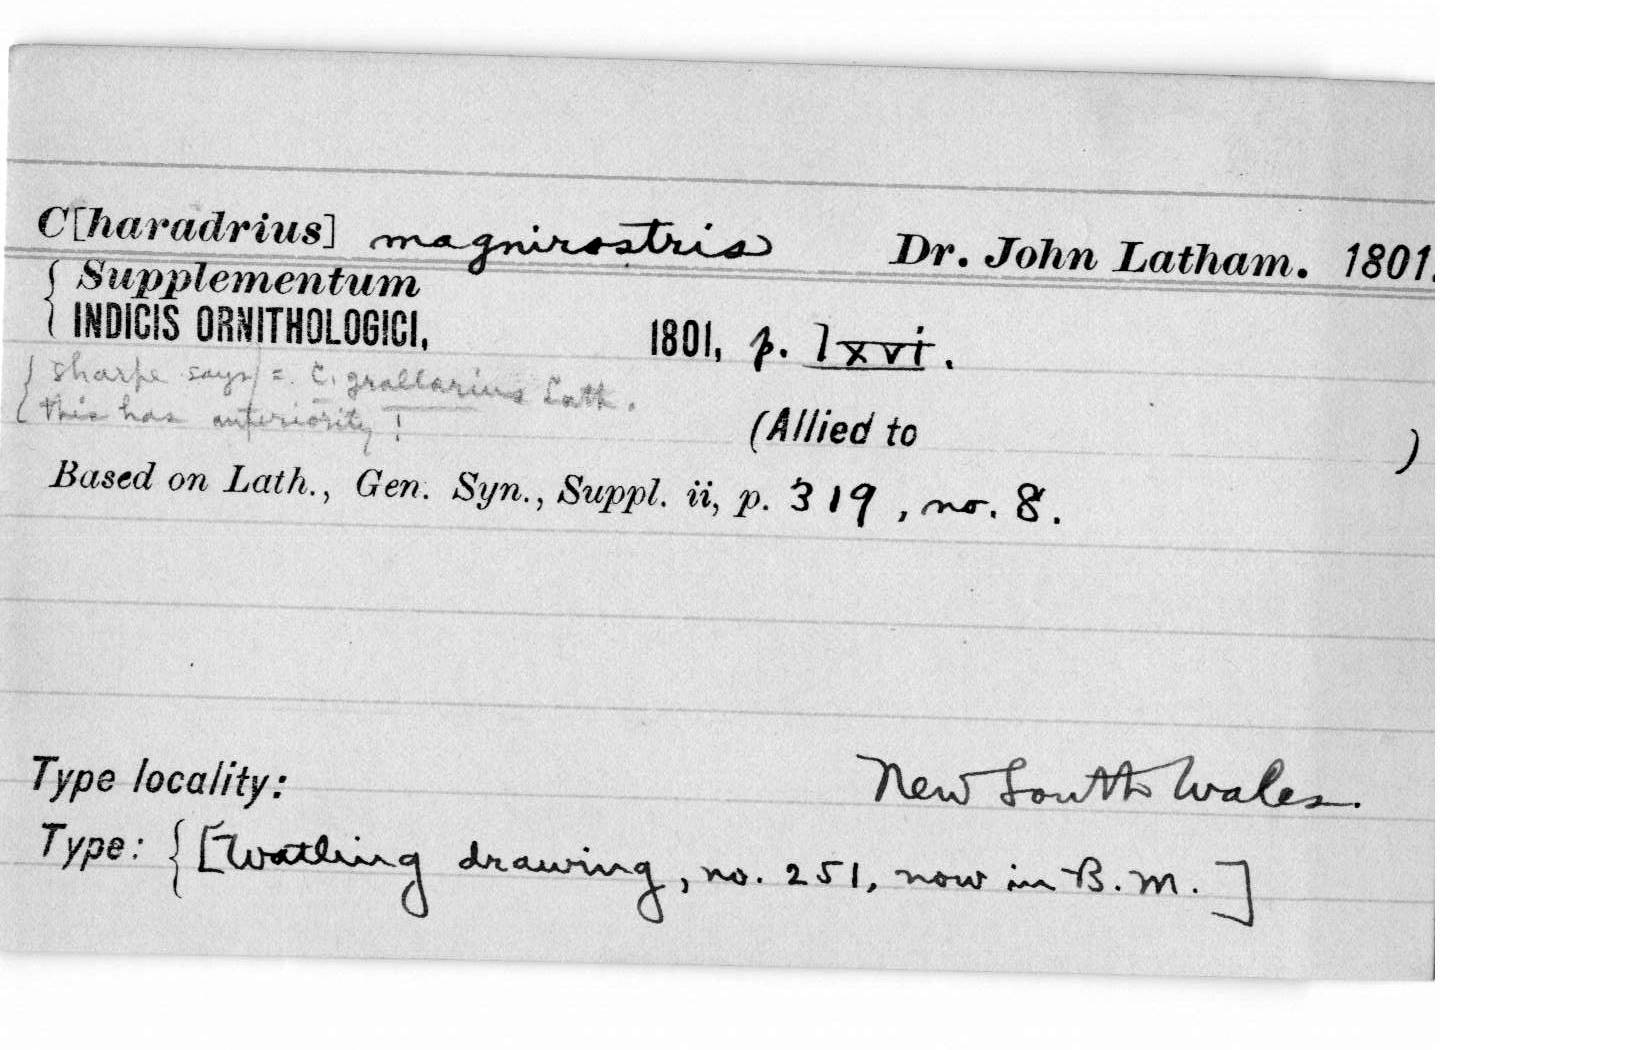 C[haradrius] magnirostris Dr. John Latham. 1801.
{ Supplementum
INDICIS ORNITHOLOGICI, 1801, p. lxvi.
{ Sharpe says = C. grallarius Lath.
this has anteriority!
(Allied to )
Based on Lath., Gen. Syn., Suppl. ii, p. 319, no. 8.
Type locality: New South Wales.
Type: { [Watling drawing, no. 251, now in B.M.]